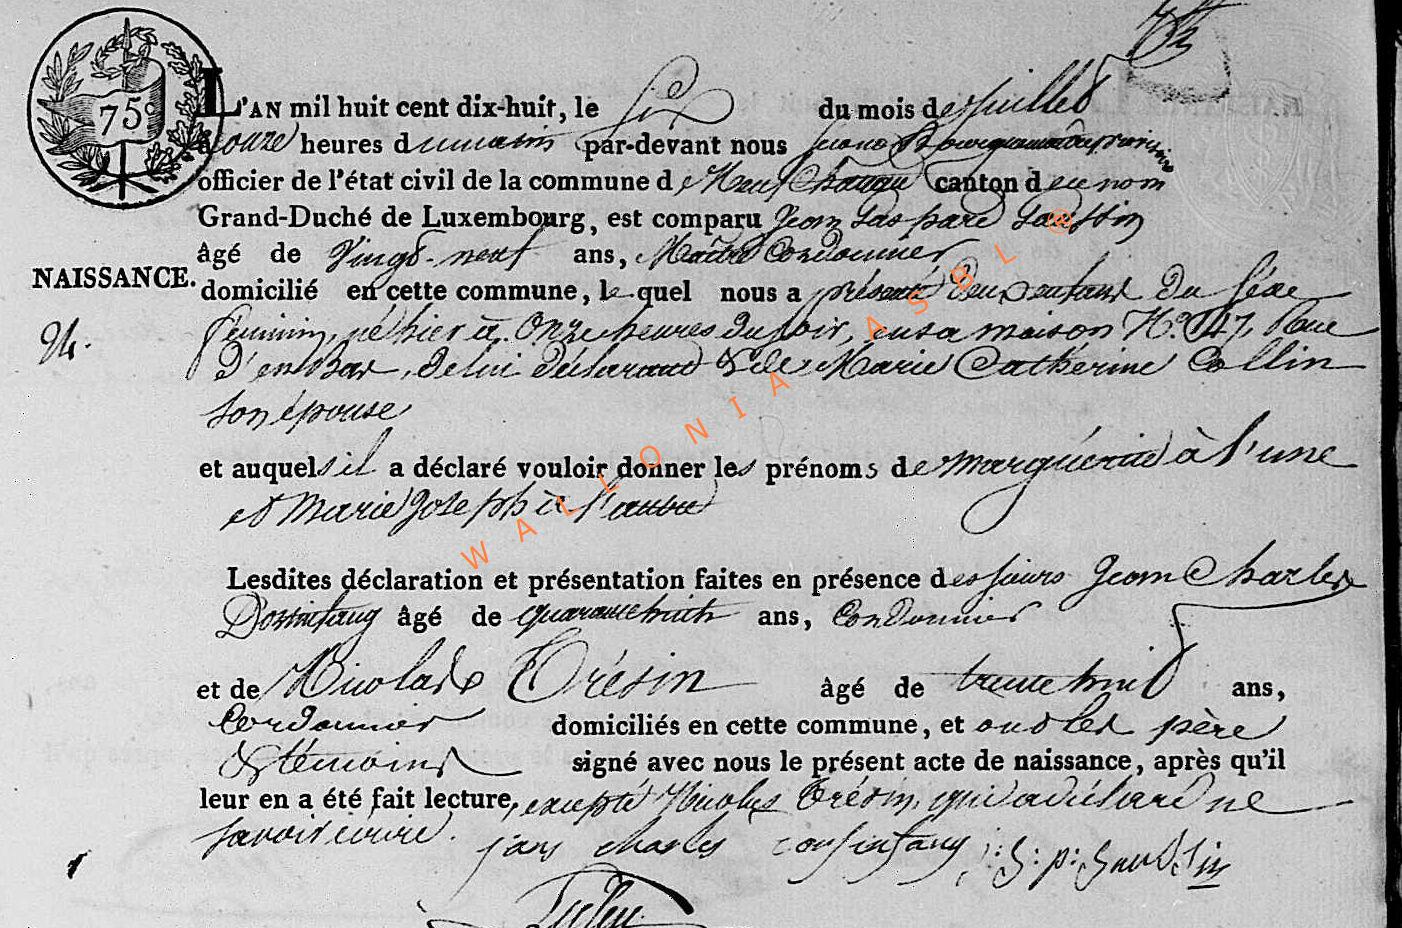 75c
L'AN mil huit cent dix-huit, le Six du mois de Juillet
à onze heures du matin par-devant nous second Bourguemaitre provisoire
officier de l'état civil de la commune de Neufchateau canton du nom
Grand-Duché de Luxembourg, est comparu Jean Gaspard
âgé de Vingt-neuf ans, Maître Cordonnier
NAISSANCE. domicilié en cette commune, lequel nous a présenté deux enfans du Séxe
féminin, né hier à onze heures du soir, en sa maison No. 147, Rue
d'en bas, de lui déclarant & de Marie Catherine Collin
son épouse
et auquels il a déclaré vouloir donner les prénoms de marguérite à l'une
et Marie Joseph à l'autre
Lesdites déclaration et présentation faites en présence des sieurs Jean Charles
âgé de quarante huit ans, Cordonnier
et de Nicolas Trésin âgé de trente huit ans,
Cordonnier domiciliés en cette commune, et ont les père
& témoins signé avec nous le présent acte de naissance, après qu'il
leur en a été fait lecture, excepté Nicolas Trésin, qui a déclaré ne
savoir écrire.
jean charles
WALLONIA ASBL ®